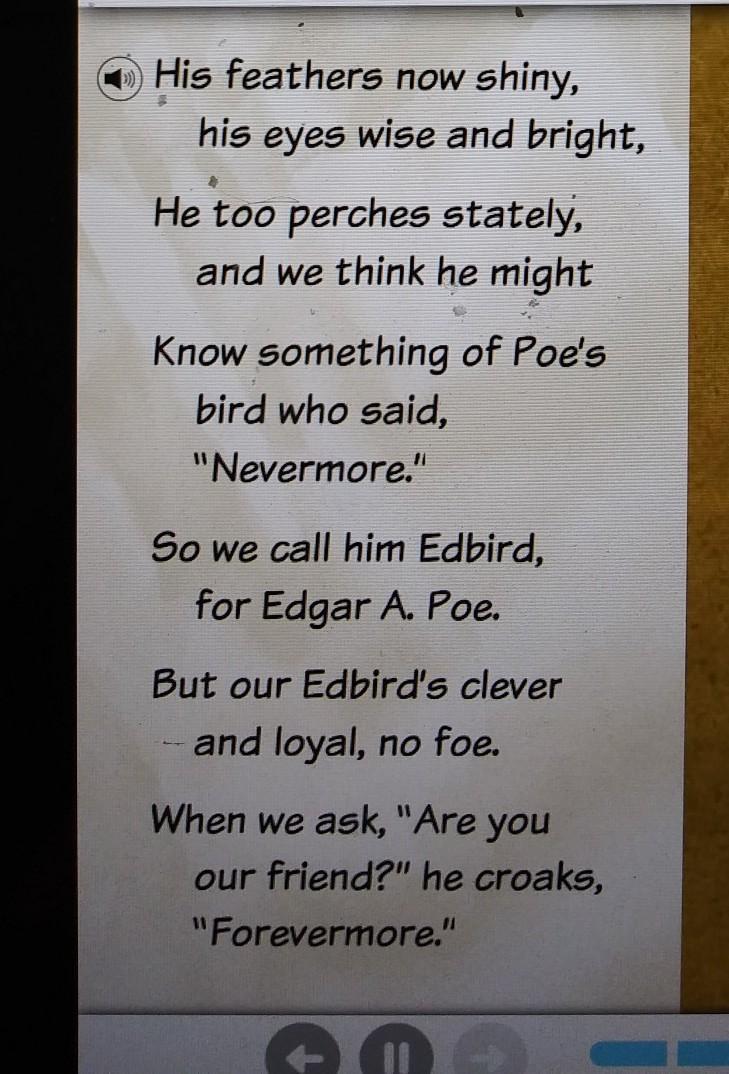 His feathers now shiny,
his eyes wise and bright,
He too perches stately,
and we think he might
Know something of Poe's
bird who said,
"Nevermore."
So we call him Edbird,
for Edgar A. Poe.
But our Edbird's clever
and loyal, no foe.
When we ask, "Are you
our friend?" he croaks,
"Forevermore."